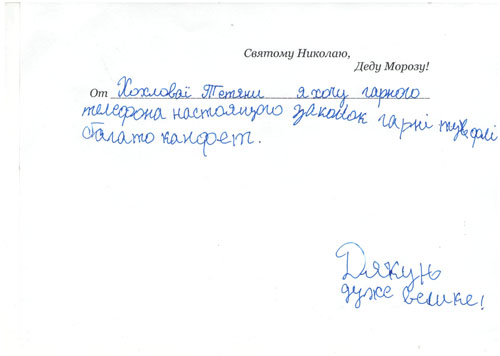 Святому Николаю,
Деду Морозу!
От Хохловаї Тетяни я хочу гарного
телефона настоящого заколок гарні туфлі
багато канфет.
Дякунь
дуже велике!